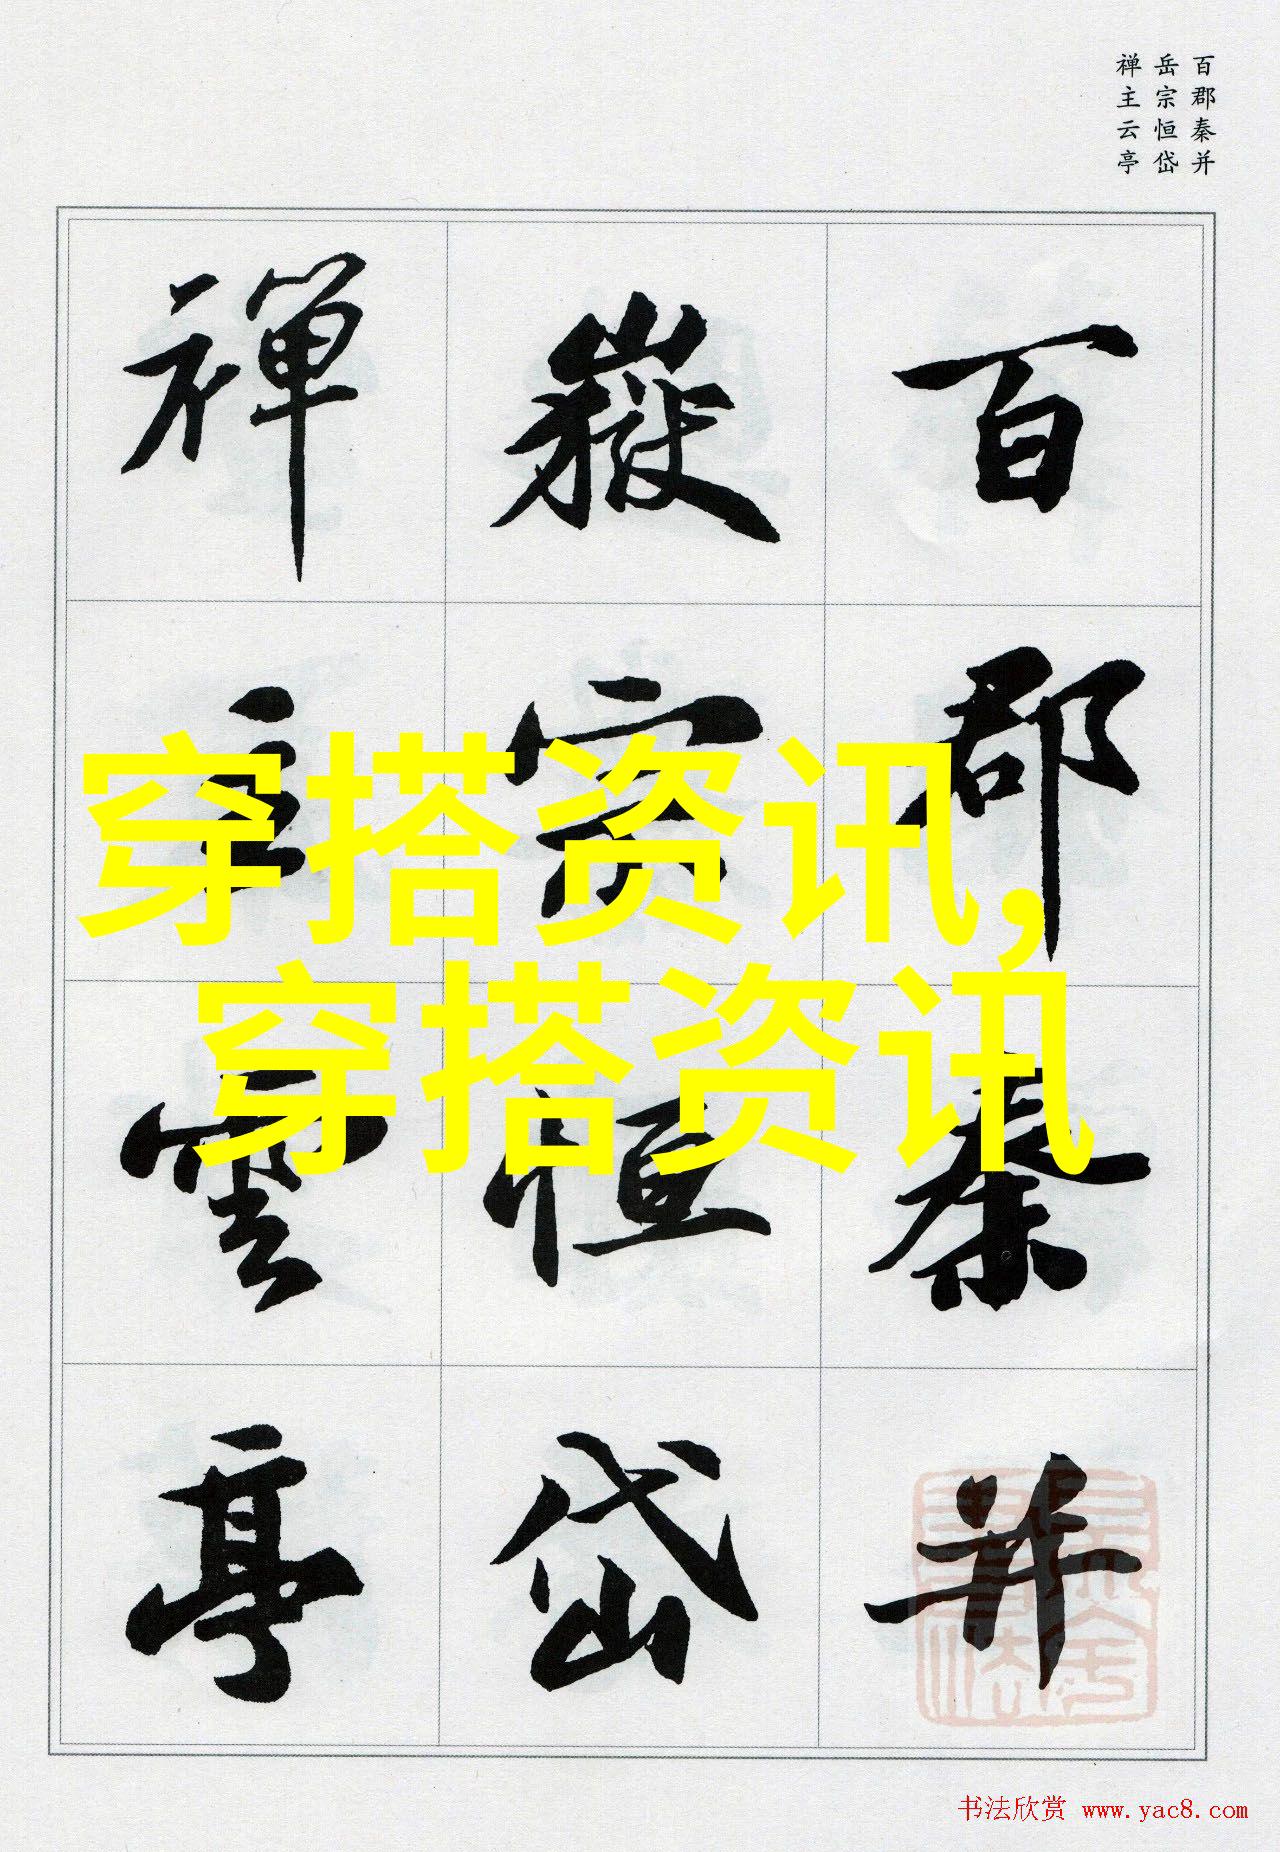 百郡秦并
岳宗恒岱
禅主云亭
百郡秦并
嶽宗恒岱
禅主雲亭
穿搭资讯,
穿搭资讯
书法欣赏 www.yac8.com